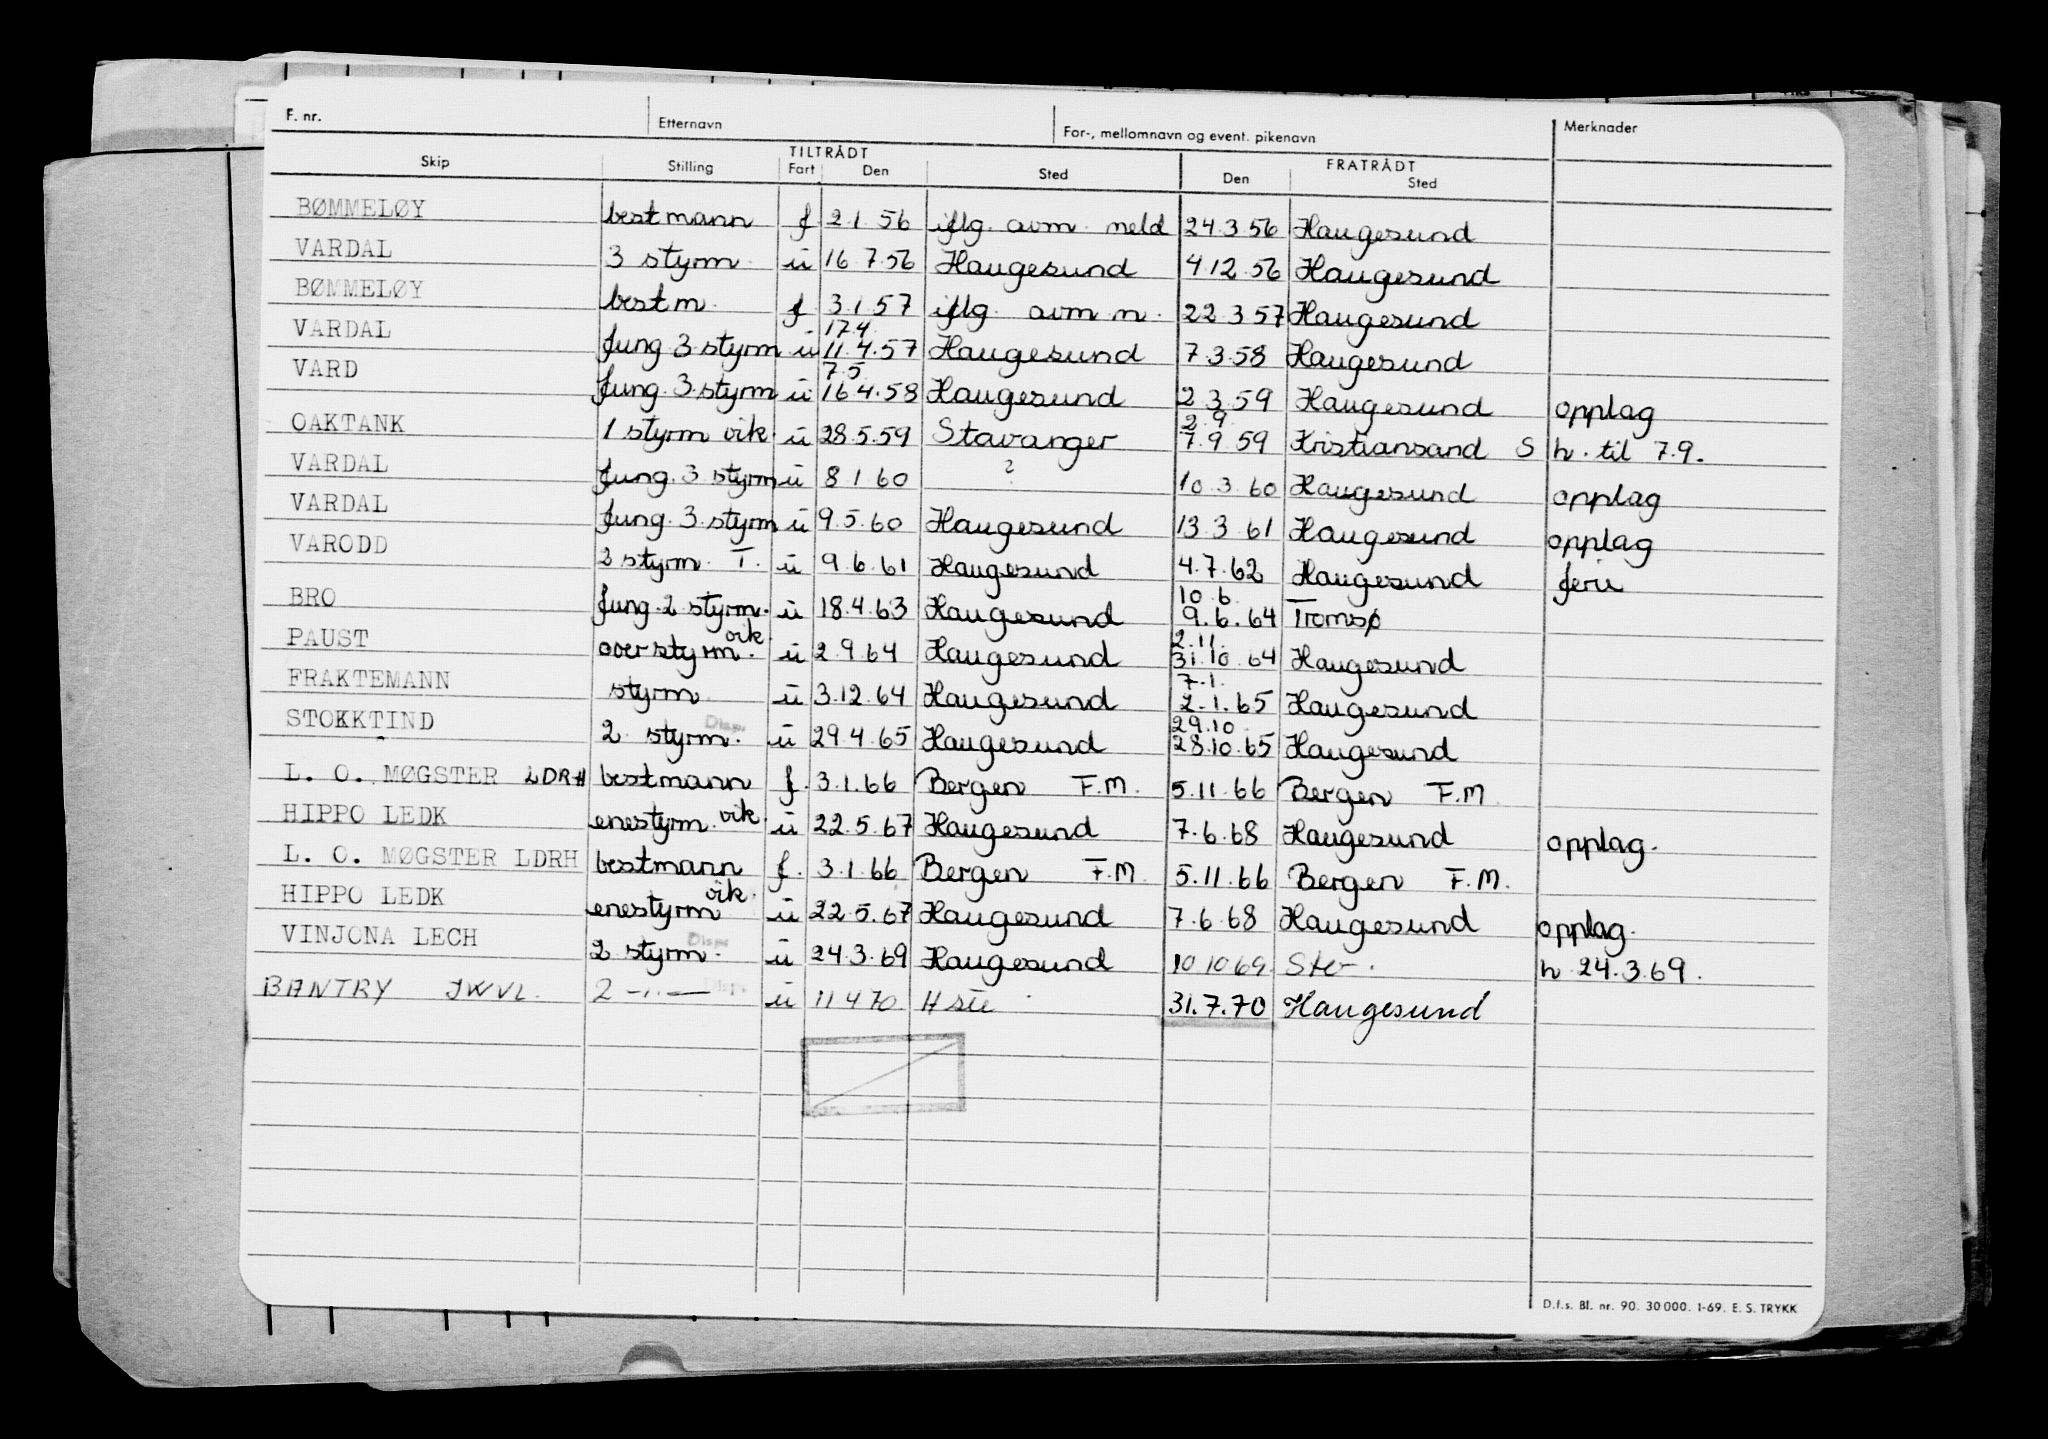 F. nr. Etternavn For-, mellomnavn og event. pikenavn Merknader
TILTRÅDT FRATRÅDT
Skip Stilling Fart Den Sted Den Sted
BØMMELØY bestmann f 2.1.56 iflg. avm. meld 24.3.56 Haugesund
VARDAL 3 styrm. u 16.7.56 Haugesund 4.12.56 Haugesund
BØMMELØY bestm. f 3.1.57 iflg. avm m. 22.3.57 Haugesund
17.4.
VARDAL fung 3 styrm u 11.4.57 Haugesund 7.3.58 Haugesund
7.5.
VARD fung. 3 styrm u 16.4.58 Haugesund 2.3.59 Haugesund opplag
2.9.
OAKTANK 1 styrm vik. u 28.5.59 Stavanger 7.9.59 Kristiansand S h. til 7.9.
VARDAL fung. 3 styrm u 8.1.60 ? 10.3.60 Haugesund opplag
VARDAL fung. 3. styrm u 9.5.60 Haugesund 13.3.61 Haugesund opplag
VARODD 2 styrm. T. u 9.6.61 Haugesund 4.7.62 Haugesund ferie
10.6.
BRO fung. 2 styrm. u 18.4.63 Haugesund 9.6.64 Tromsø
vik. 2.11.
PAUST overstyrm. u 2.9.64 Haugesund 31.10.64 Haugesund
7.1.
FRAKTEMANN styrm. u 3.12.64 Haugesund 2.1.65 Haugesund
Disp. 29.10.
STOKKTIND 2. styrm. u 29.4.65 Haugesund 28.10.65 Haugesund
L. O. MØGSTER LDRH bestmann f. 3.1.66 Bergen F.M. 5.11.66 Bergen F.M.
HIPPO LEDK enestyrm. vik. u 22.5.67 Haugesund 7.6.68 Haugesund opplag.
L. O. MØGSTER LDRH bestmann f. 3.1.66 Bergen F.M. 5.11.66 Bergen F.M.
vik.
HIPPO LEDK enestyrm u 22.5.67 Haugesund 7.6.68 Haugesund opplag.
Disp.
VINJONA LECH 2 styrm. u 24.3.69 Haugesund 10.10.69. h 24.3.69.
BANTRY JWVL. 2 -"- Disp. u 11.4.70 31.7.70 Haugesund
D.f.s. Bl. nr. 90. 30000. 1-69. E. S. TRYKK